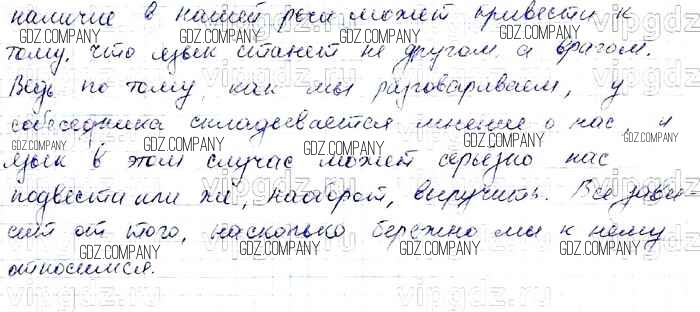 наличие в нашей речи может привести к
тому, что язык станет не другом, а врагом.
Ведь по тому, как мы разговариваем, у
собеседника складывается мнение о нас, и
язык в этом случае может серьезно нас
подвести или же, наоборот, выручить. Все зави-
сит от того, насколько бережно мы к нему
относимся.
GDZ.COMPANY
vipgdz.ru